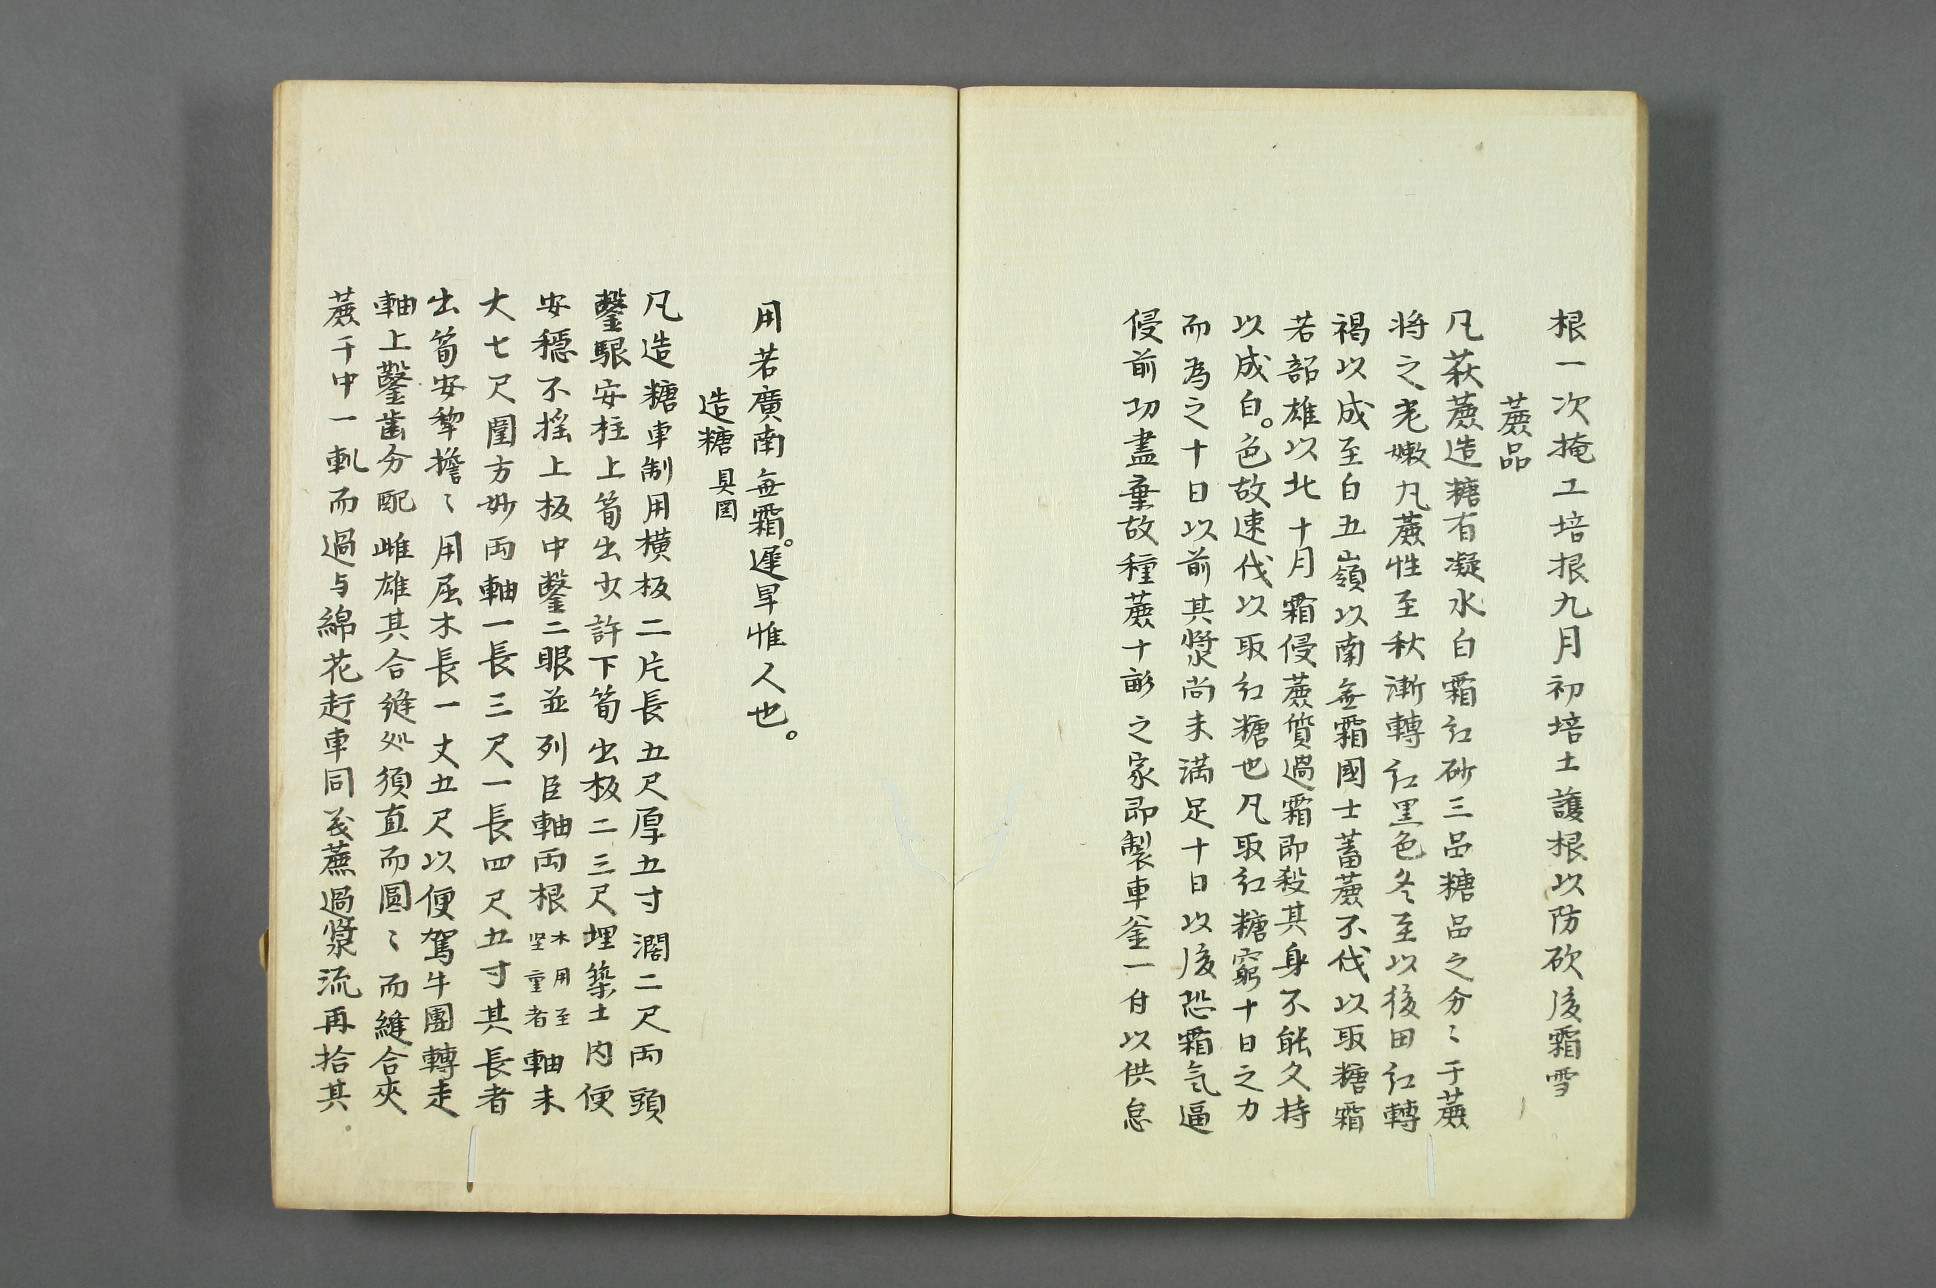 根一次掩工培根九月初培土護根以防砍後霜雪
蔗品
凡荻蔗造糖有凝水白霜紅砂三品糖品之分〻于蔗
將之老嫩凡蔗性至秋漸轉紅黒色冬至以後田紅轉
褐以成至白五嶺以南無霜國士蓄蔗不伐以取糖霜
若韶雄以北十月霜侵蔗質過霜即殺其身不能久持
以成白。色故速伐以取紅糖也凡取紅糖窮十日之力
而為之十日以前其漿尚未満足十日以後恐霜気逼
侵前功盡棄故種蔗十畝之家即製車釜一付以供急
用若廣南無霜。遲早惟人也。
造糖 具図
凡造糖車制用横板二片長五尺厚五寸濶二尺両頭
鑿眼安柱上筍出少許下筍出板二三尺埋築土内便
安穏不搖上板中鑿二眼並列臣軸両根木用至堅重者軸末
大七尺圍方妙両軸一長三尺一長四尺五寸其長者
出筍安犂擔〻用屈木長一丈五尺以便駕牛團轉走
軸上鑿歯分配雌雄其合縫処須直而圓〻而縫合夾
蔗于中一軋而過与綿花赶車同義蔗過漿流再拾其